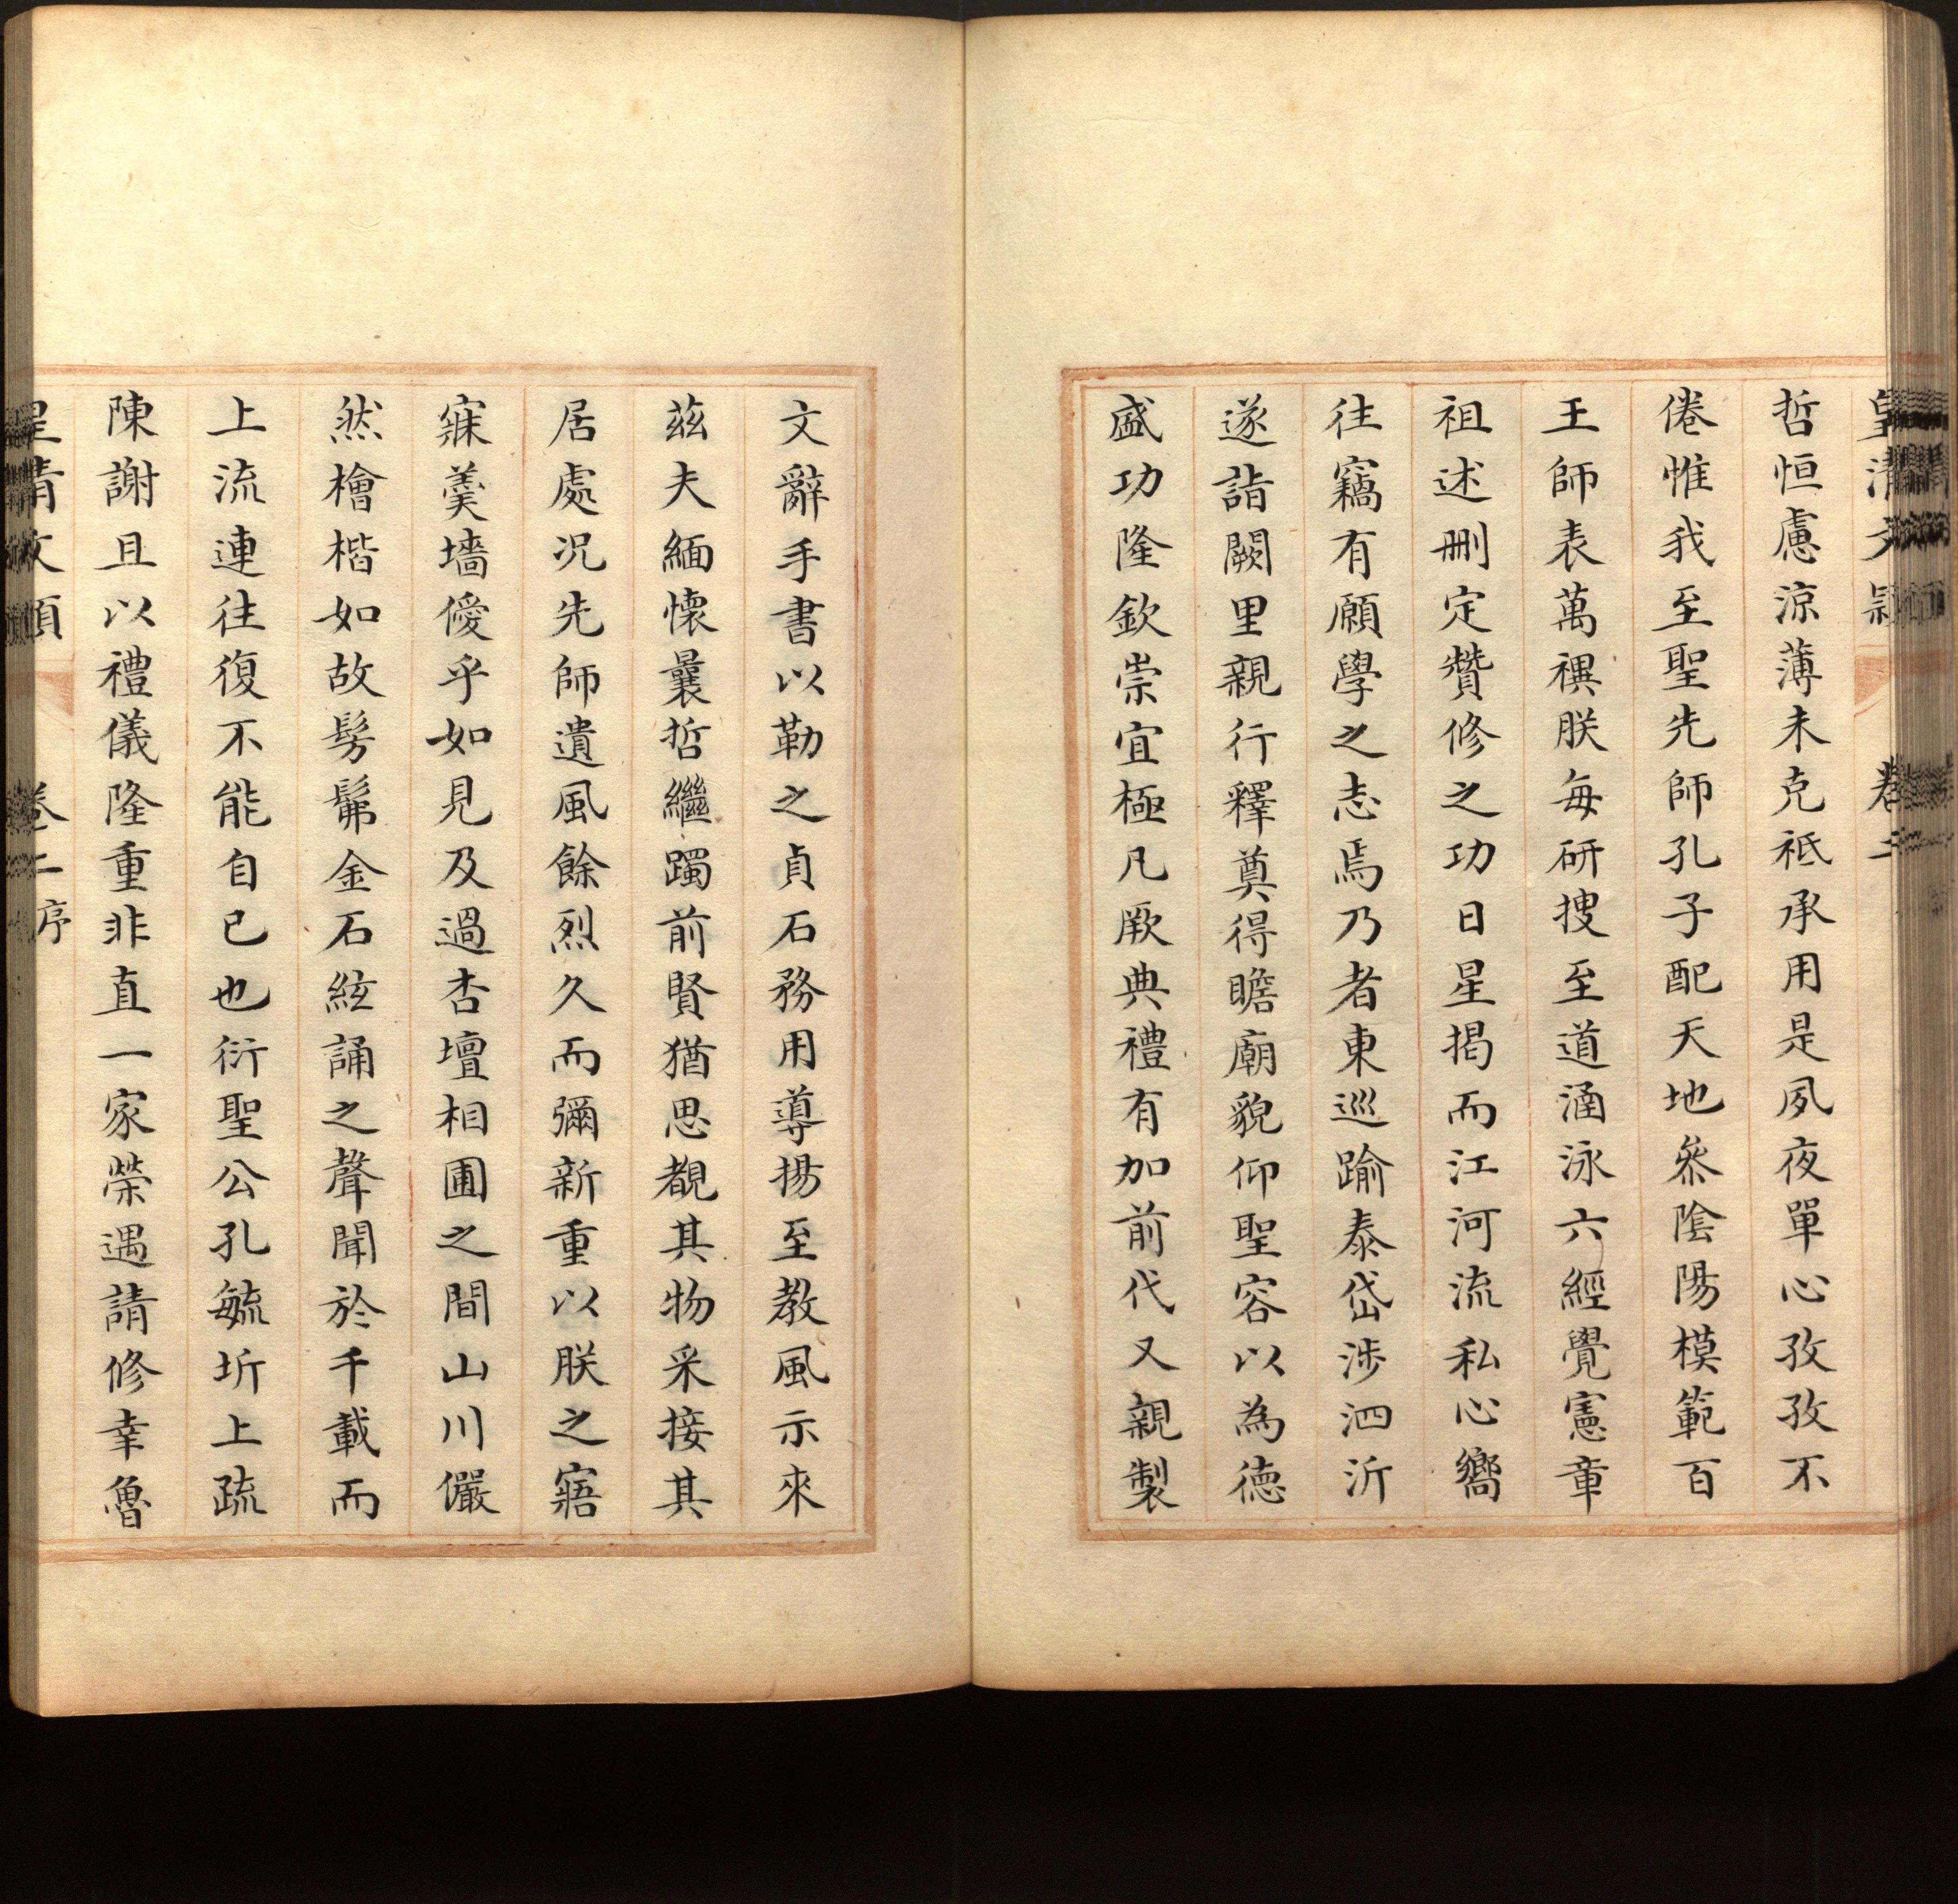 皇清文穎 卷二
哲恒慮涼薄未克祗承用是夙夜單心孜孜不
倦惟我至聖先師孔子配天地叅陰陽模範百
王師表萬禩朕每研搜至道涵泳六經覺憲章
祖述刪定贊修之功日星揭而江河流私心嚮
往竊有願學之志焉乃者東巡踰泰岱涉泗沂
遂詣闕里親行釋奠得瞻廟貌仰聖容以為德
盛功隆欽崇宜極凡厥典禮有加前代又親製
文辭手書以勒之貞石務用導揚至教風示來
茲夫緬懷曩哲繼躅前賢猶思覩其物采接其
居處況先師遺風餘烈久而彌新重以朕之寤
寐羹墻僾乎如見及過杏壇相圃之間山川儼
然檜楷如故髣髴金石絃誦之聲聞於千載而
上流連往復不能自已也衍聖公孔毓圻上疏
陳謝且以禮儀隆重非直一家榮遇請修幸魯
皇清文穎 卷二序